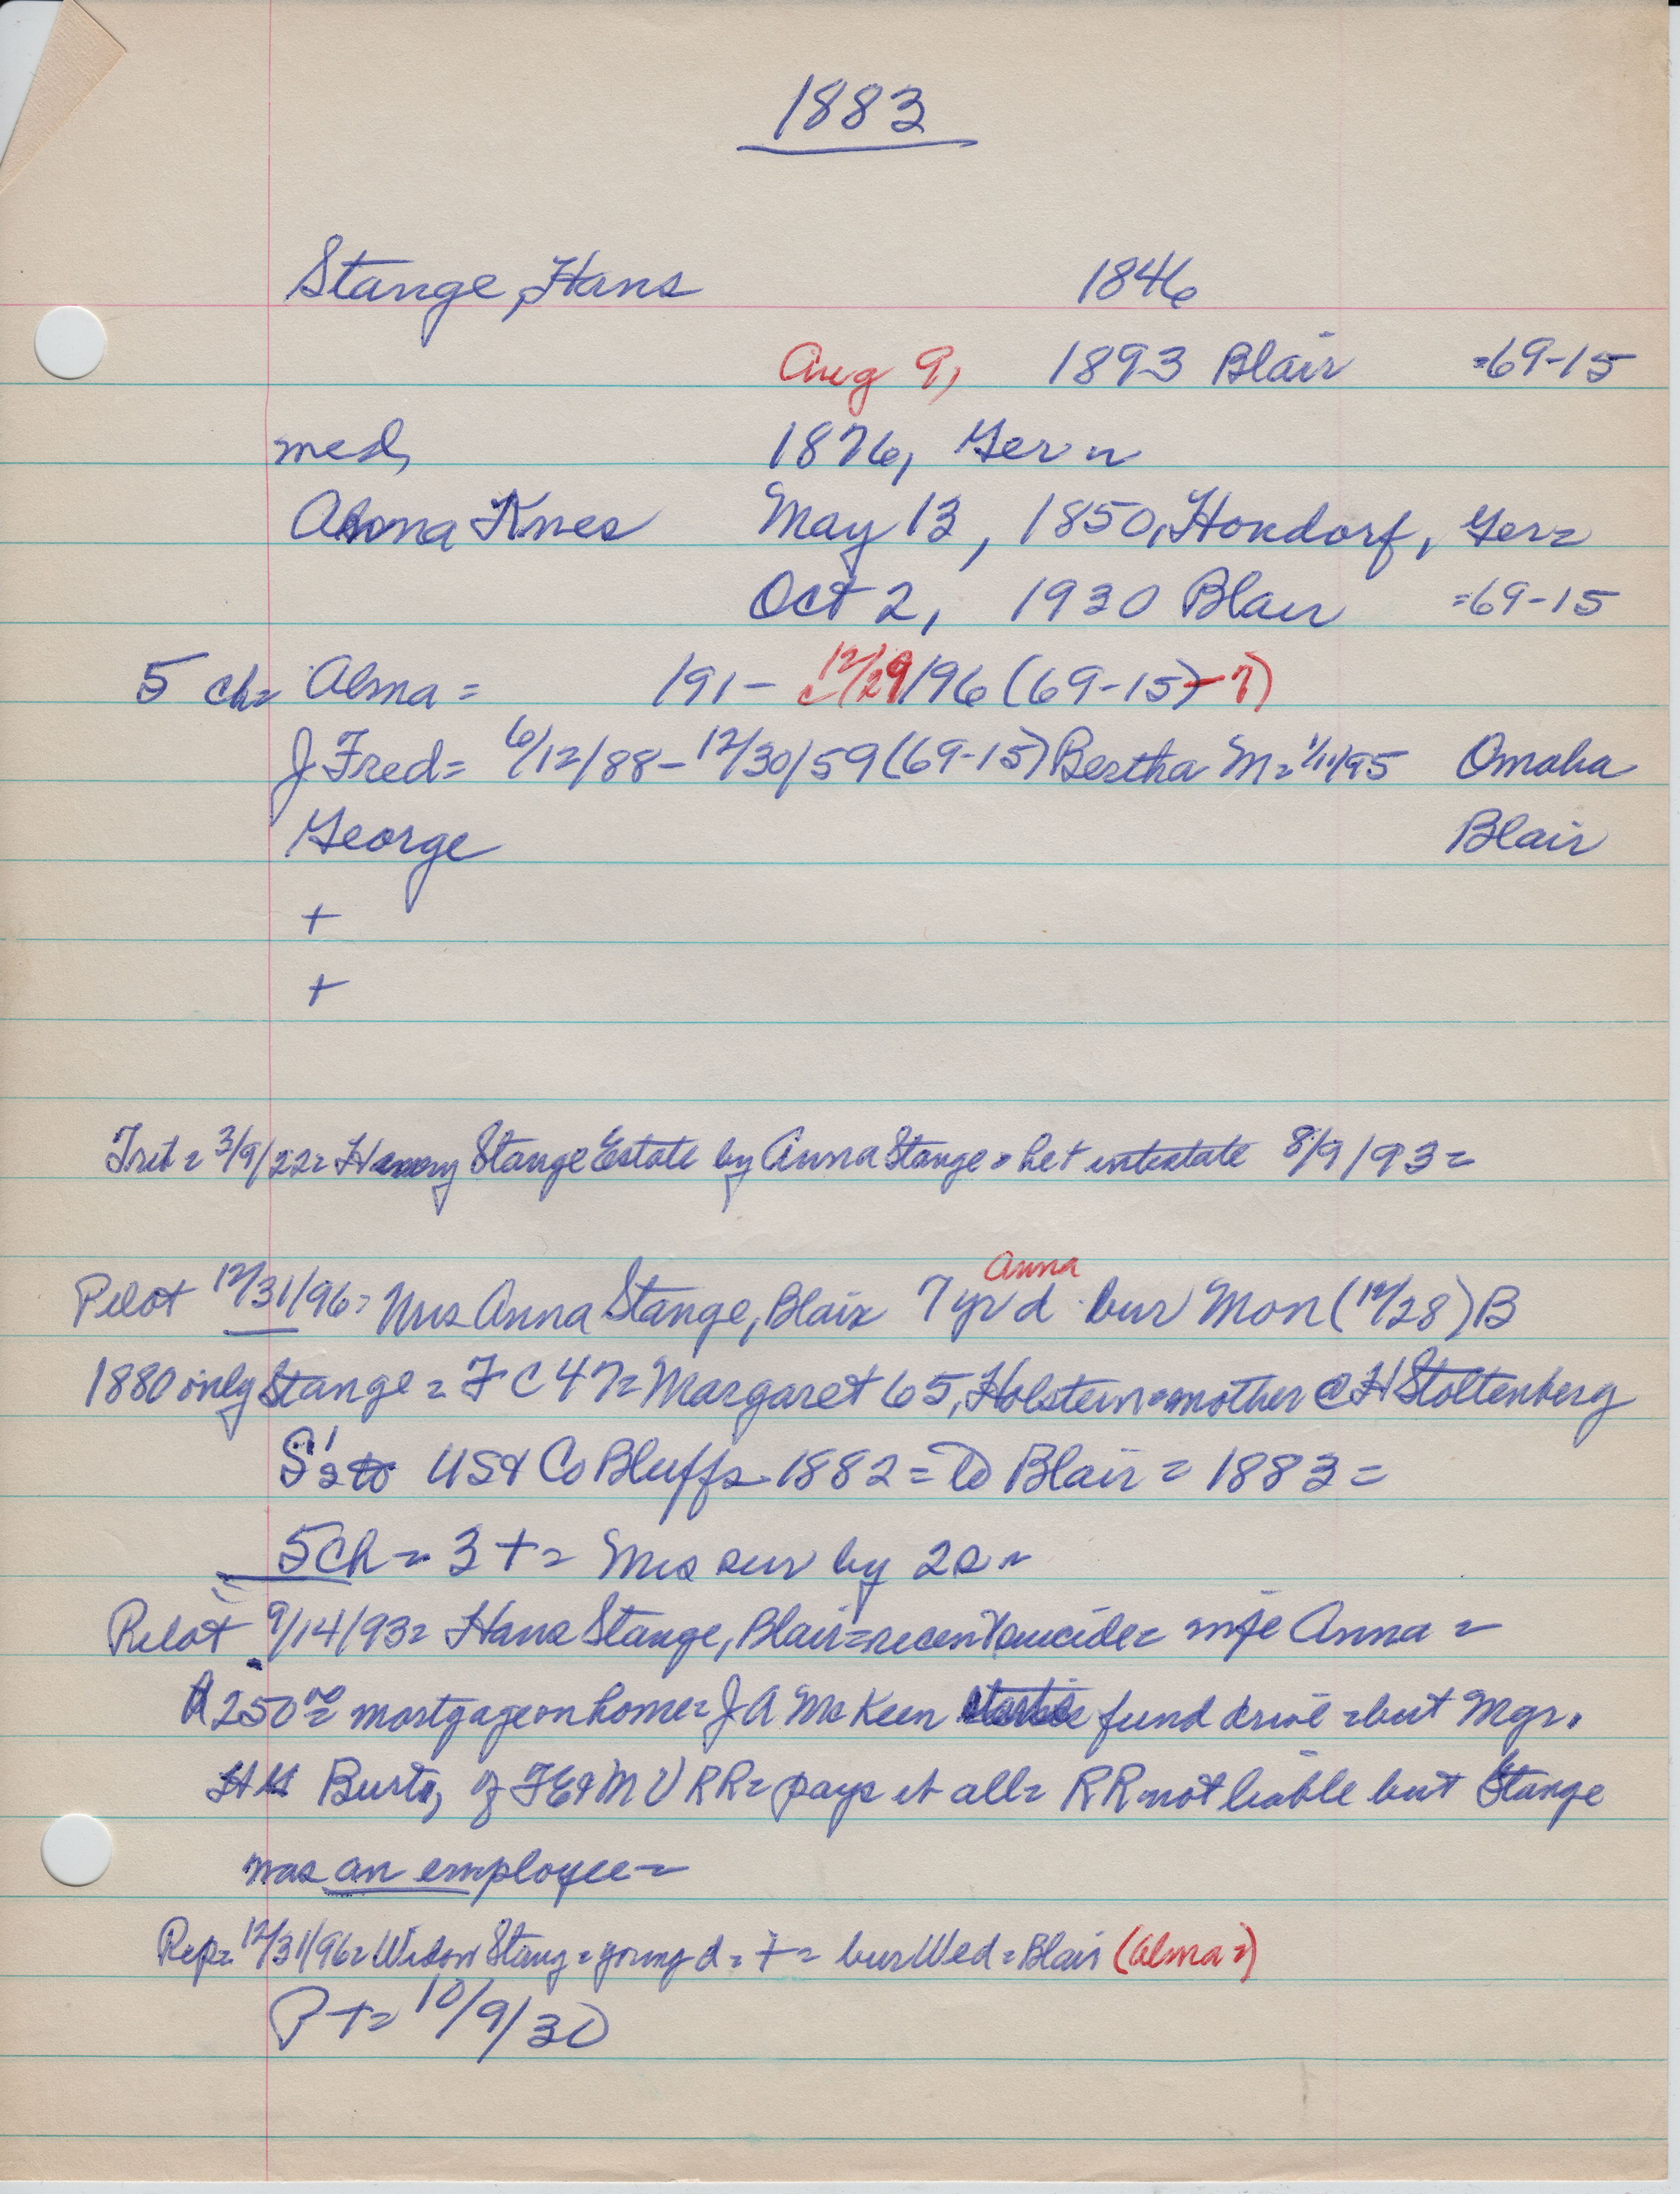 1883
Stange, Hans 1846
Aug 9, 1893 Blair =69-15
med, 1876, Ger =
Anna Knes May 13, 1850, Hondorf, Ger=
Oct 2, 1930 Blair =69-15
5 ch= Alma = 191- 12/29/96 (69-15)-7)
J Fred= 6/12/88-12/30/59 (69-15) Bertha M= 1/11/95 Omaha
George Blair
+
+
Trib = 3/9/22= Stange Estate by Anna Stange = he + intestate 8/9/93=
Anna
Pilot 12/31/96= Mrs Anna Stange, Blair 7 yr d bur Mon (12/28) B
1880 only Stange = FC 47= Margaret 65, Holstein=mother @ H Stoltenberg
S's to US & Co Bluffs 1882 = to Blair = 1883 =
5 Ch = 3 + = Mrs sur by 2s =
Pilot 9/14/93= Hans Stange, Blair=recent suicide= wife Anna =
250 00 = mortgage on home= J A McKeen fund drive =but Mgr.
Burt, of FE & MV RR= pays it all= RR not liable but Stange
was an employee=
Rep= 12/31/96= Widow Stang = young d = + = bur Wed = Blair (Alma =)
P + = 10/9/30